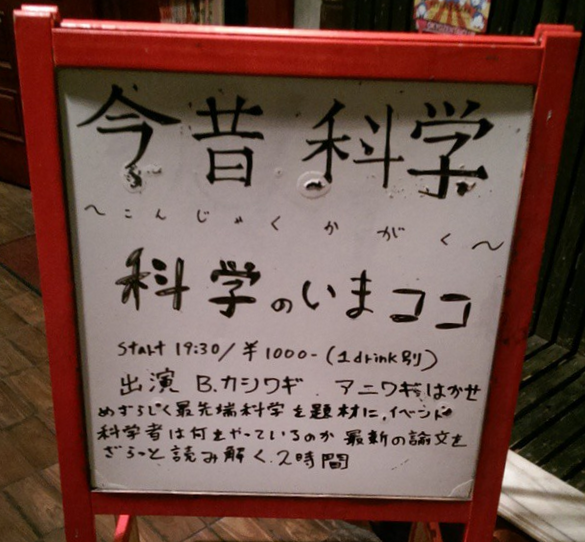 今昔科学
～こんじゃくかがく～
科学のいまココ
Start 19:30/¥1000-(1drink別)
出演 B.カシワギ、アニワギはかせ
めずらしく最先端科学を題材に、イベント
科学者は何をやっているのか 最新の論文を
ざらっと読み解く、2時間